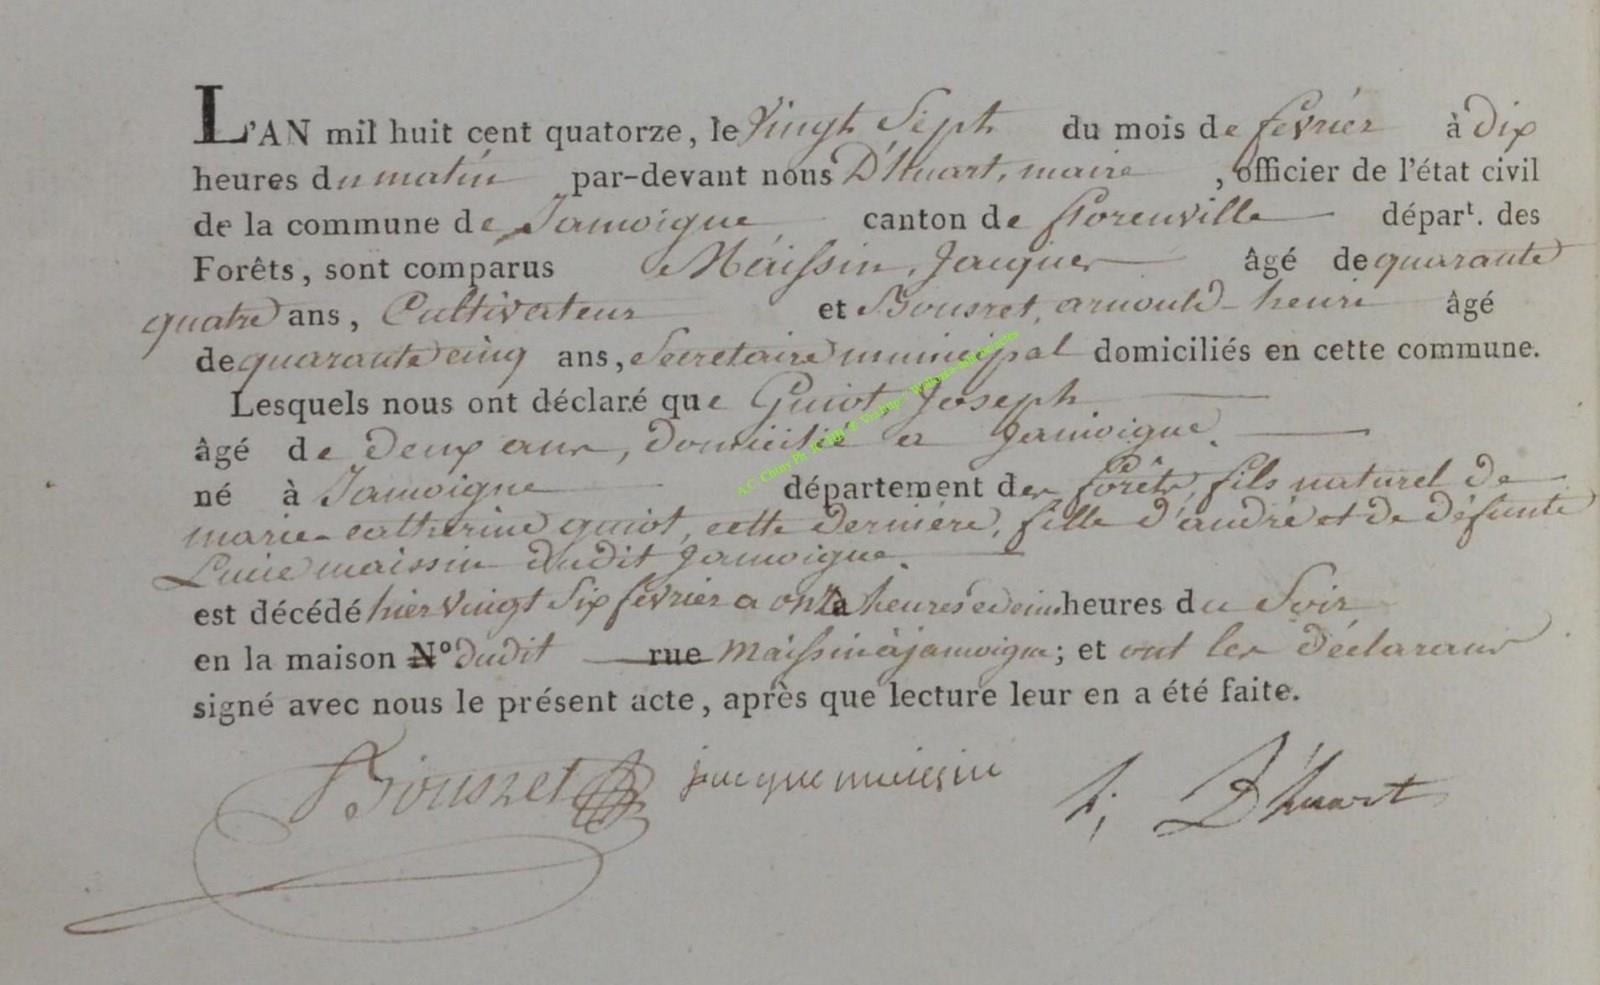 L'AN mil huit cent quatorze, le Vingt Sept du mois de fevrier à Dix
heures du matin par-devant nous D'huart, maire, officier de l'état civil
de la commune de Jamoigne canton de florenville départ. des
Forêts, sont comparus Maissin, Jacques âgé de quarante
quatre ans, Cultivateur et Bousret, arnould-henri âgé
de quarante cinq ans, Secretaire municipal domiciliés en cette commune.
Lesquels nous ont déclaré que Guiot, Joseph
âgé de Deux ans, Domicilié a Jamoigne.
né à Jamoigne département des forêts, fils naturel de
marie-catherine guiot, cette derniére, fille d'andré et de défunte
Lucie maissin dudit Jamoigne.
est décédé hier vingt Six fevrier a onze heures et demi heures du Soir
en la maison N° dudit rue Maissin à jamoigne; et ont les déclarans
signé avec nous le présent acte, après que lecture leur en a été faite.
Bousret jacque maissin h; D'huart
A.C. Chiny Ph.